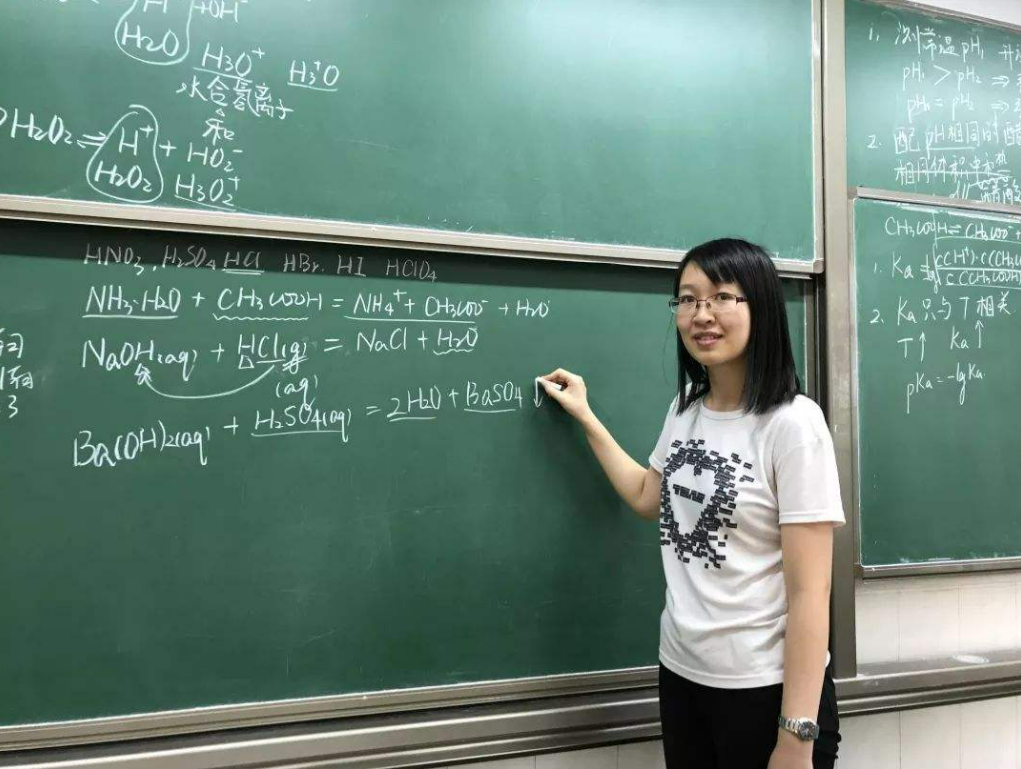 H +OH⁻
H2O
H3O⁺ H3⁺O
水合氢离子
和
H2O2 ⇌ H⁺ + HO2⁻
H2O2 H3O2⁺
HNO3, H2SO4 HCl HBr. HI HClO4
NH3·H2O + CH3COOH = NH4⁺ + CH3COO⁻ + H2O
NaOH(aq) + HCl(g) = NaCl + H2O
(aq)
Ba(OH)2(aq) + H2SO4(aq) = 2H2O + BaSO4 ↓
3
1. 测常温 pH1
pH1 > pH2 ⇒
pH1 = pH2 ⇒
2. 配 pH相同的
相同体积
CH3COOH ⇌ CH3COO⁻ +
1. Ka = c(H⁺)·c(CH3COO
c(CH3COOH)
2. Ka 只与 T 相关
T↑ Ka↑
pKa = -lgKa